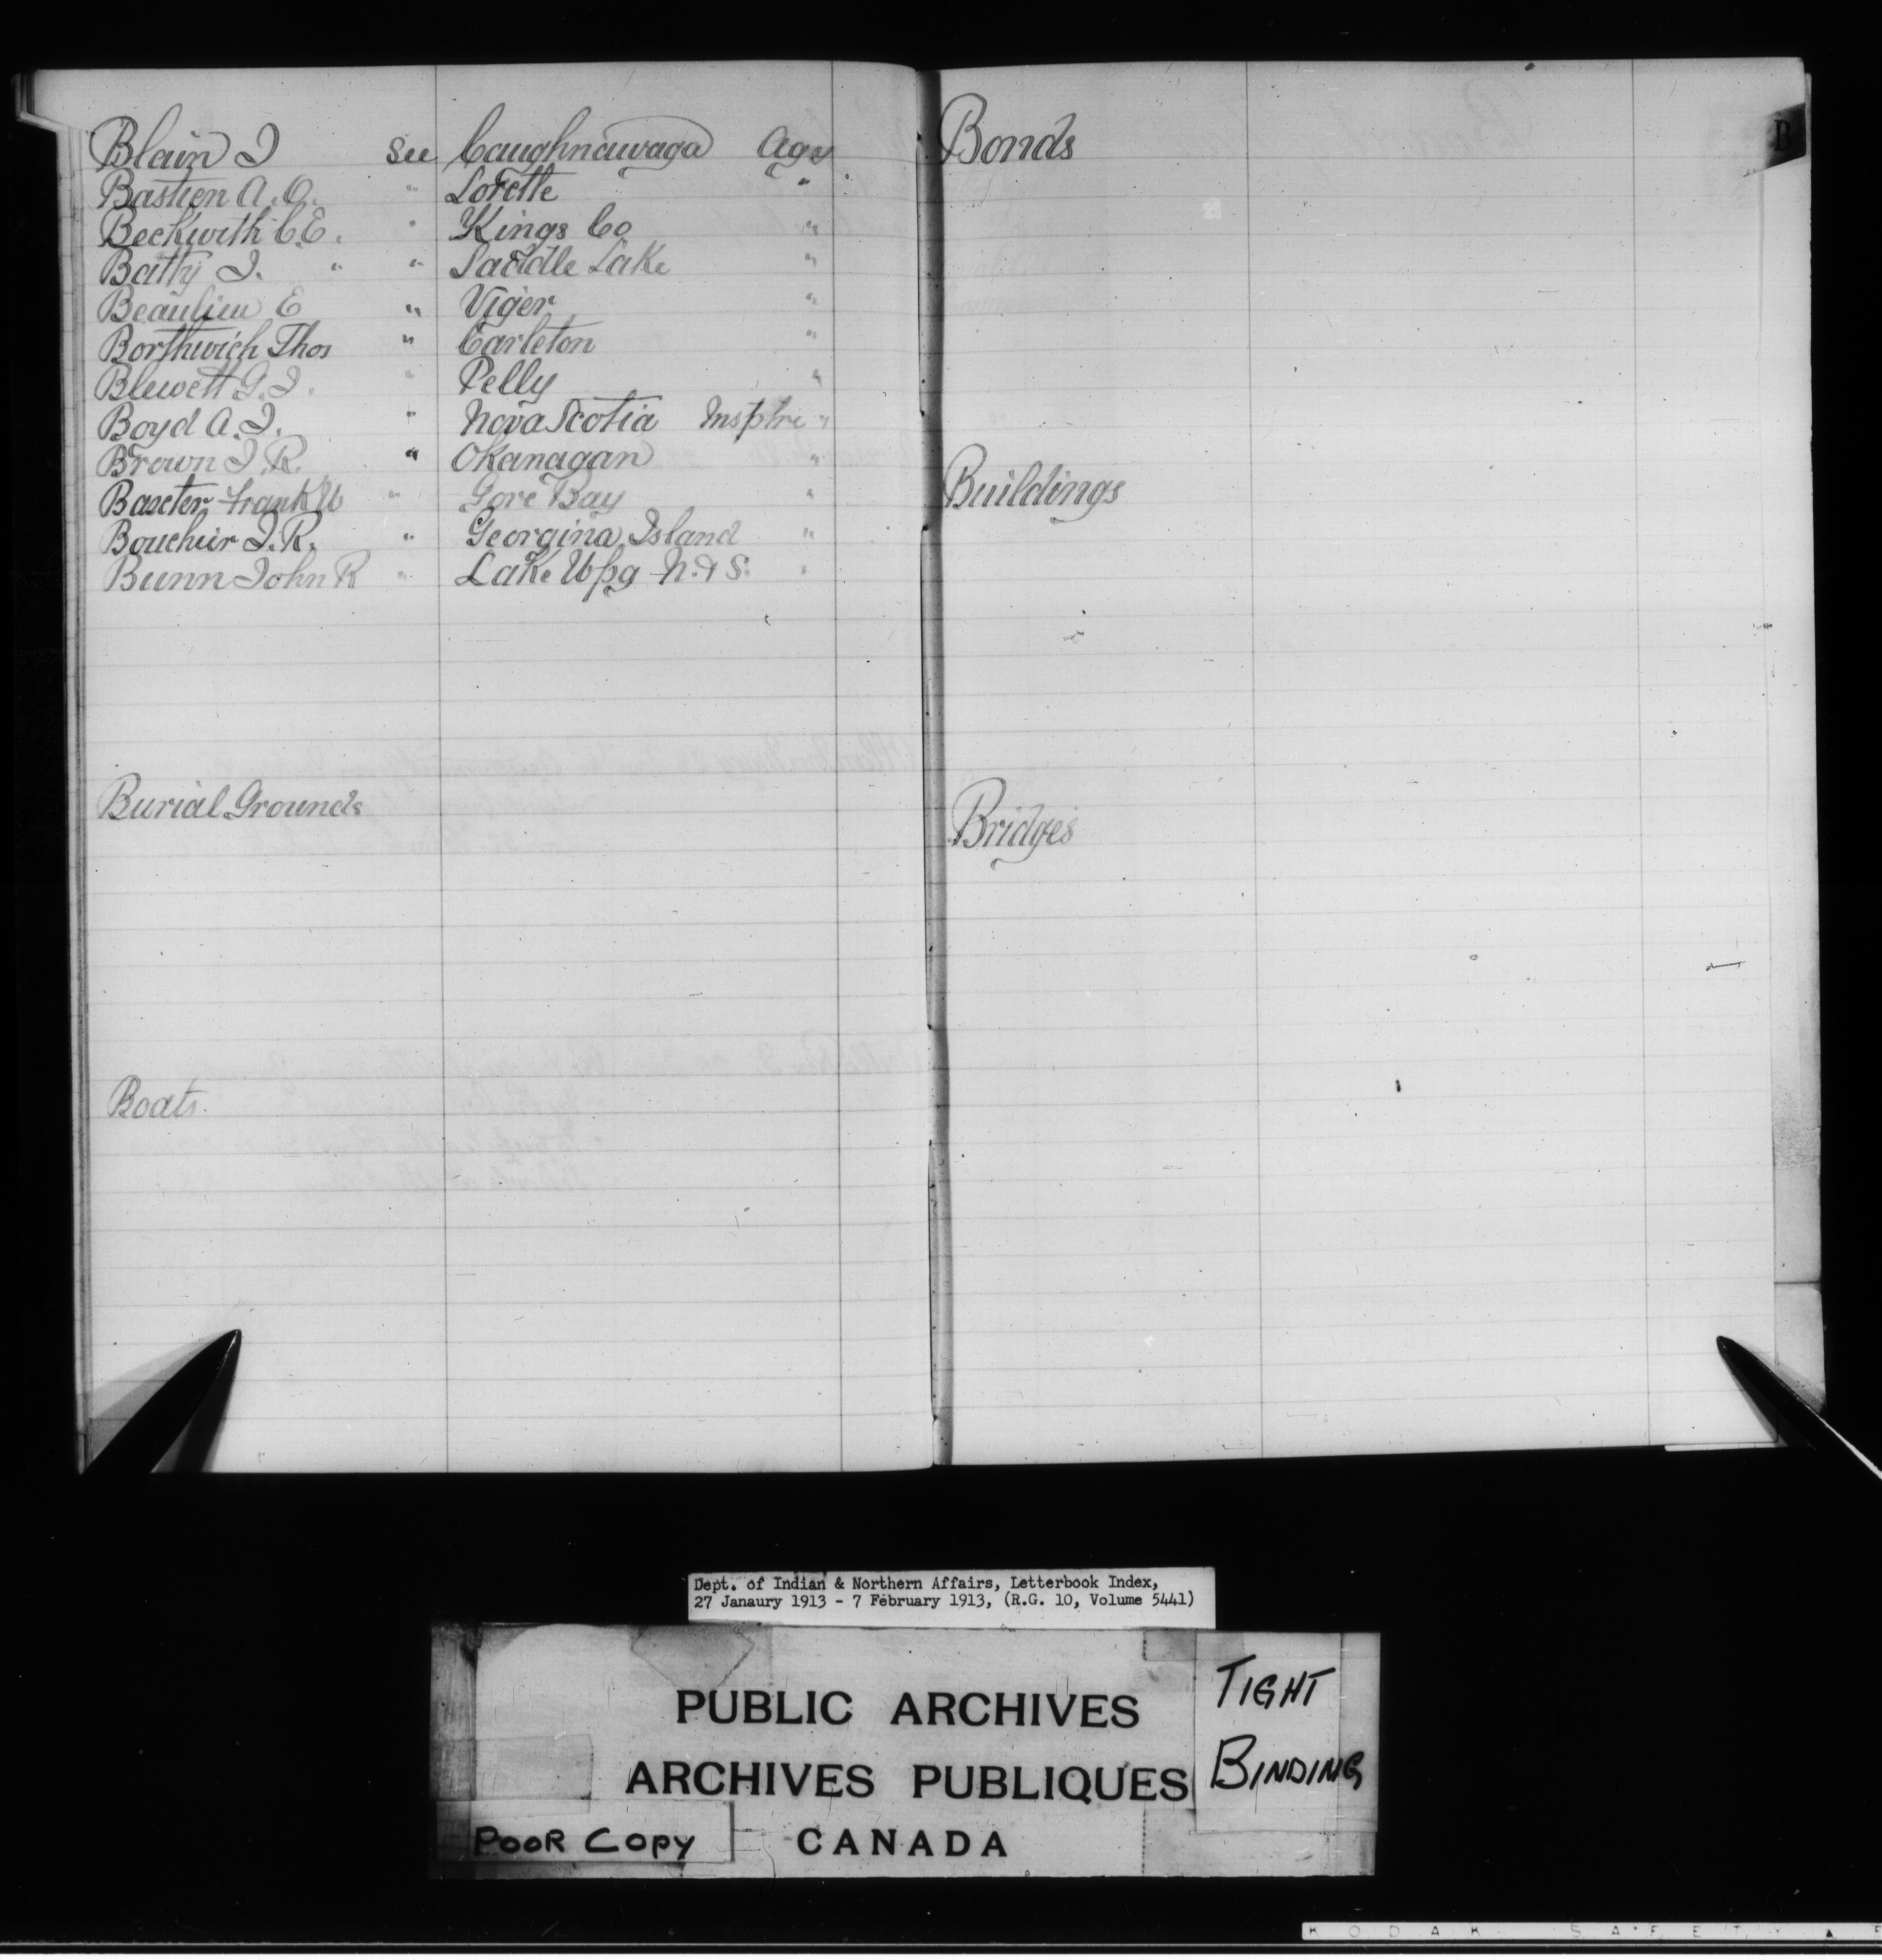 Blain J See Caughnawaga Agcy
Bastien A. O. " Lorette "
Beckwith C. E. " Kings Co "
Batty J. " " Saddle Lake "
Beaulieu E " Viger "
Borthwick Thos " Carleton "
Blewett G. J. " Pelly "
Boyd A. J. " Nova Scotia Insptre "
Brown J. R. " Okanagan "
Baxter Frank W " Gore Bay "
Bouchier J. R. " Georgina Island "
Bunn John R " Lake Wpg N. & S. "
Burial Grounds
Boats.
Bonds
B
Buildings
Bridges
Dept. of Indian & Northern Affairs, Letterbook Index,
27 Janaury 1913 - 7 February 1913, (R.G. 10, Volume 5441)
PUBLIC ARCHIVES
ARCHIVES PUBLIQUES
CANADA
TIGHT
BINDING
POOR COPY
KODAK SAFETY